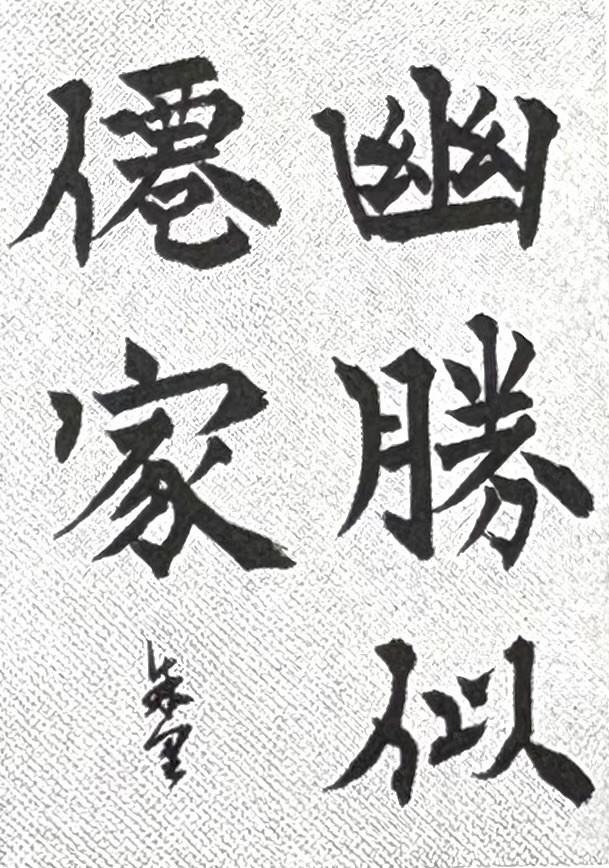 幽勝似
僊家